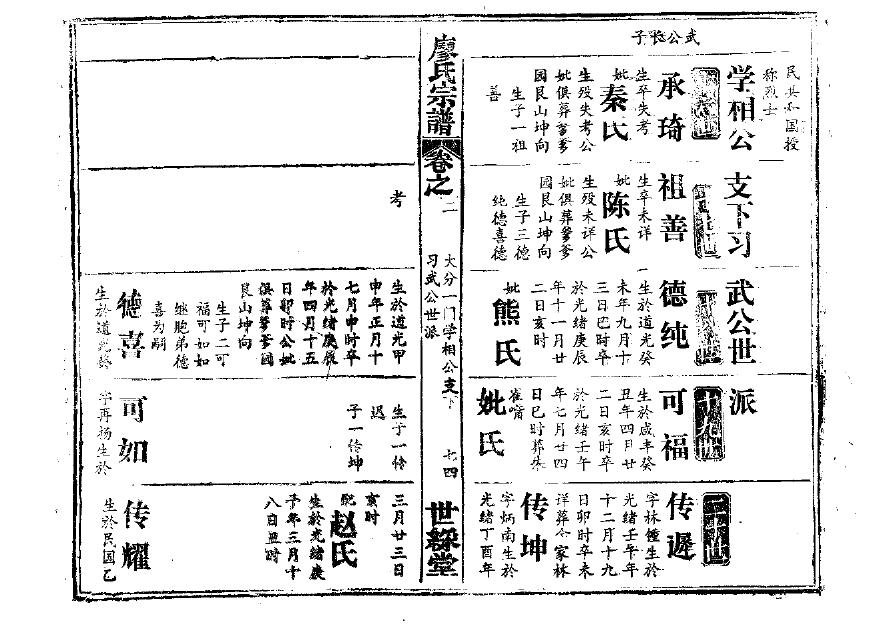 武公长子
民共和国授
称烈士
学相公
支下习
武公世
派
承琦
生卒失考
妣
秦氏
生殁失考公
妣俱葬爹爹
國艮山坤向
生子一祖
善
祖善
生卒未详
妣
陈氏
生殁未详公
妣俱葬爹爹
國艮山坤向
生子三德
纯德喜德
考
德纯
生於道光癸
未年九月十
三日巳时卒
於光绪庚辰
年十一月廿
二日亥时
妣
熊氏
生於道光甲
申年正月十
七月申时卒
於光绪庚辰
年四月十五
日卯时公妣
俱葬爹爹國
艮山坤向
生子二可
福可如如
继胞弟德
喜为嗣
德喜
生於道光癸
可福
生於咸丰癸
丑年四月廿
二日亥时卒
於光绪壬午
年七月廿四
日巳时葬朱
崔嘴
妣氏
生子一传
迟
子一传坤
可如
字再扬生於
二十世
传遲
字林鍾生於
光绪壬午年
十二月十九
日卯时卒未
详葬仝家林
传坤
字炳南生於
光绪丁酉年
三月廿三日
亥时
配
赵氏
生於光绪庚
子年三月十
八日丑时
传耀
生於民国乙
廖氏宗譜
卷之二
大分一门学相公支下
习武公世派
七四
世綵堂